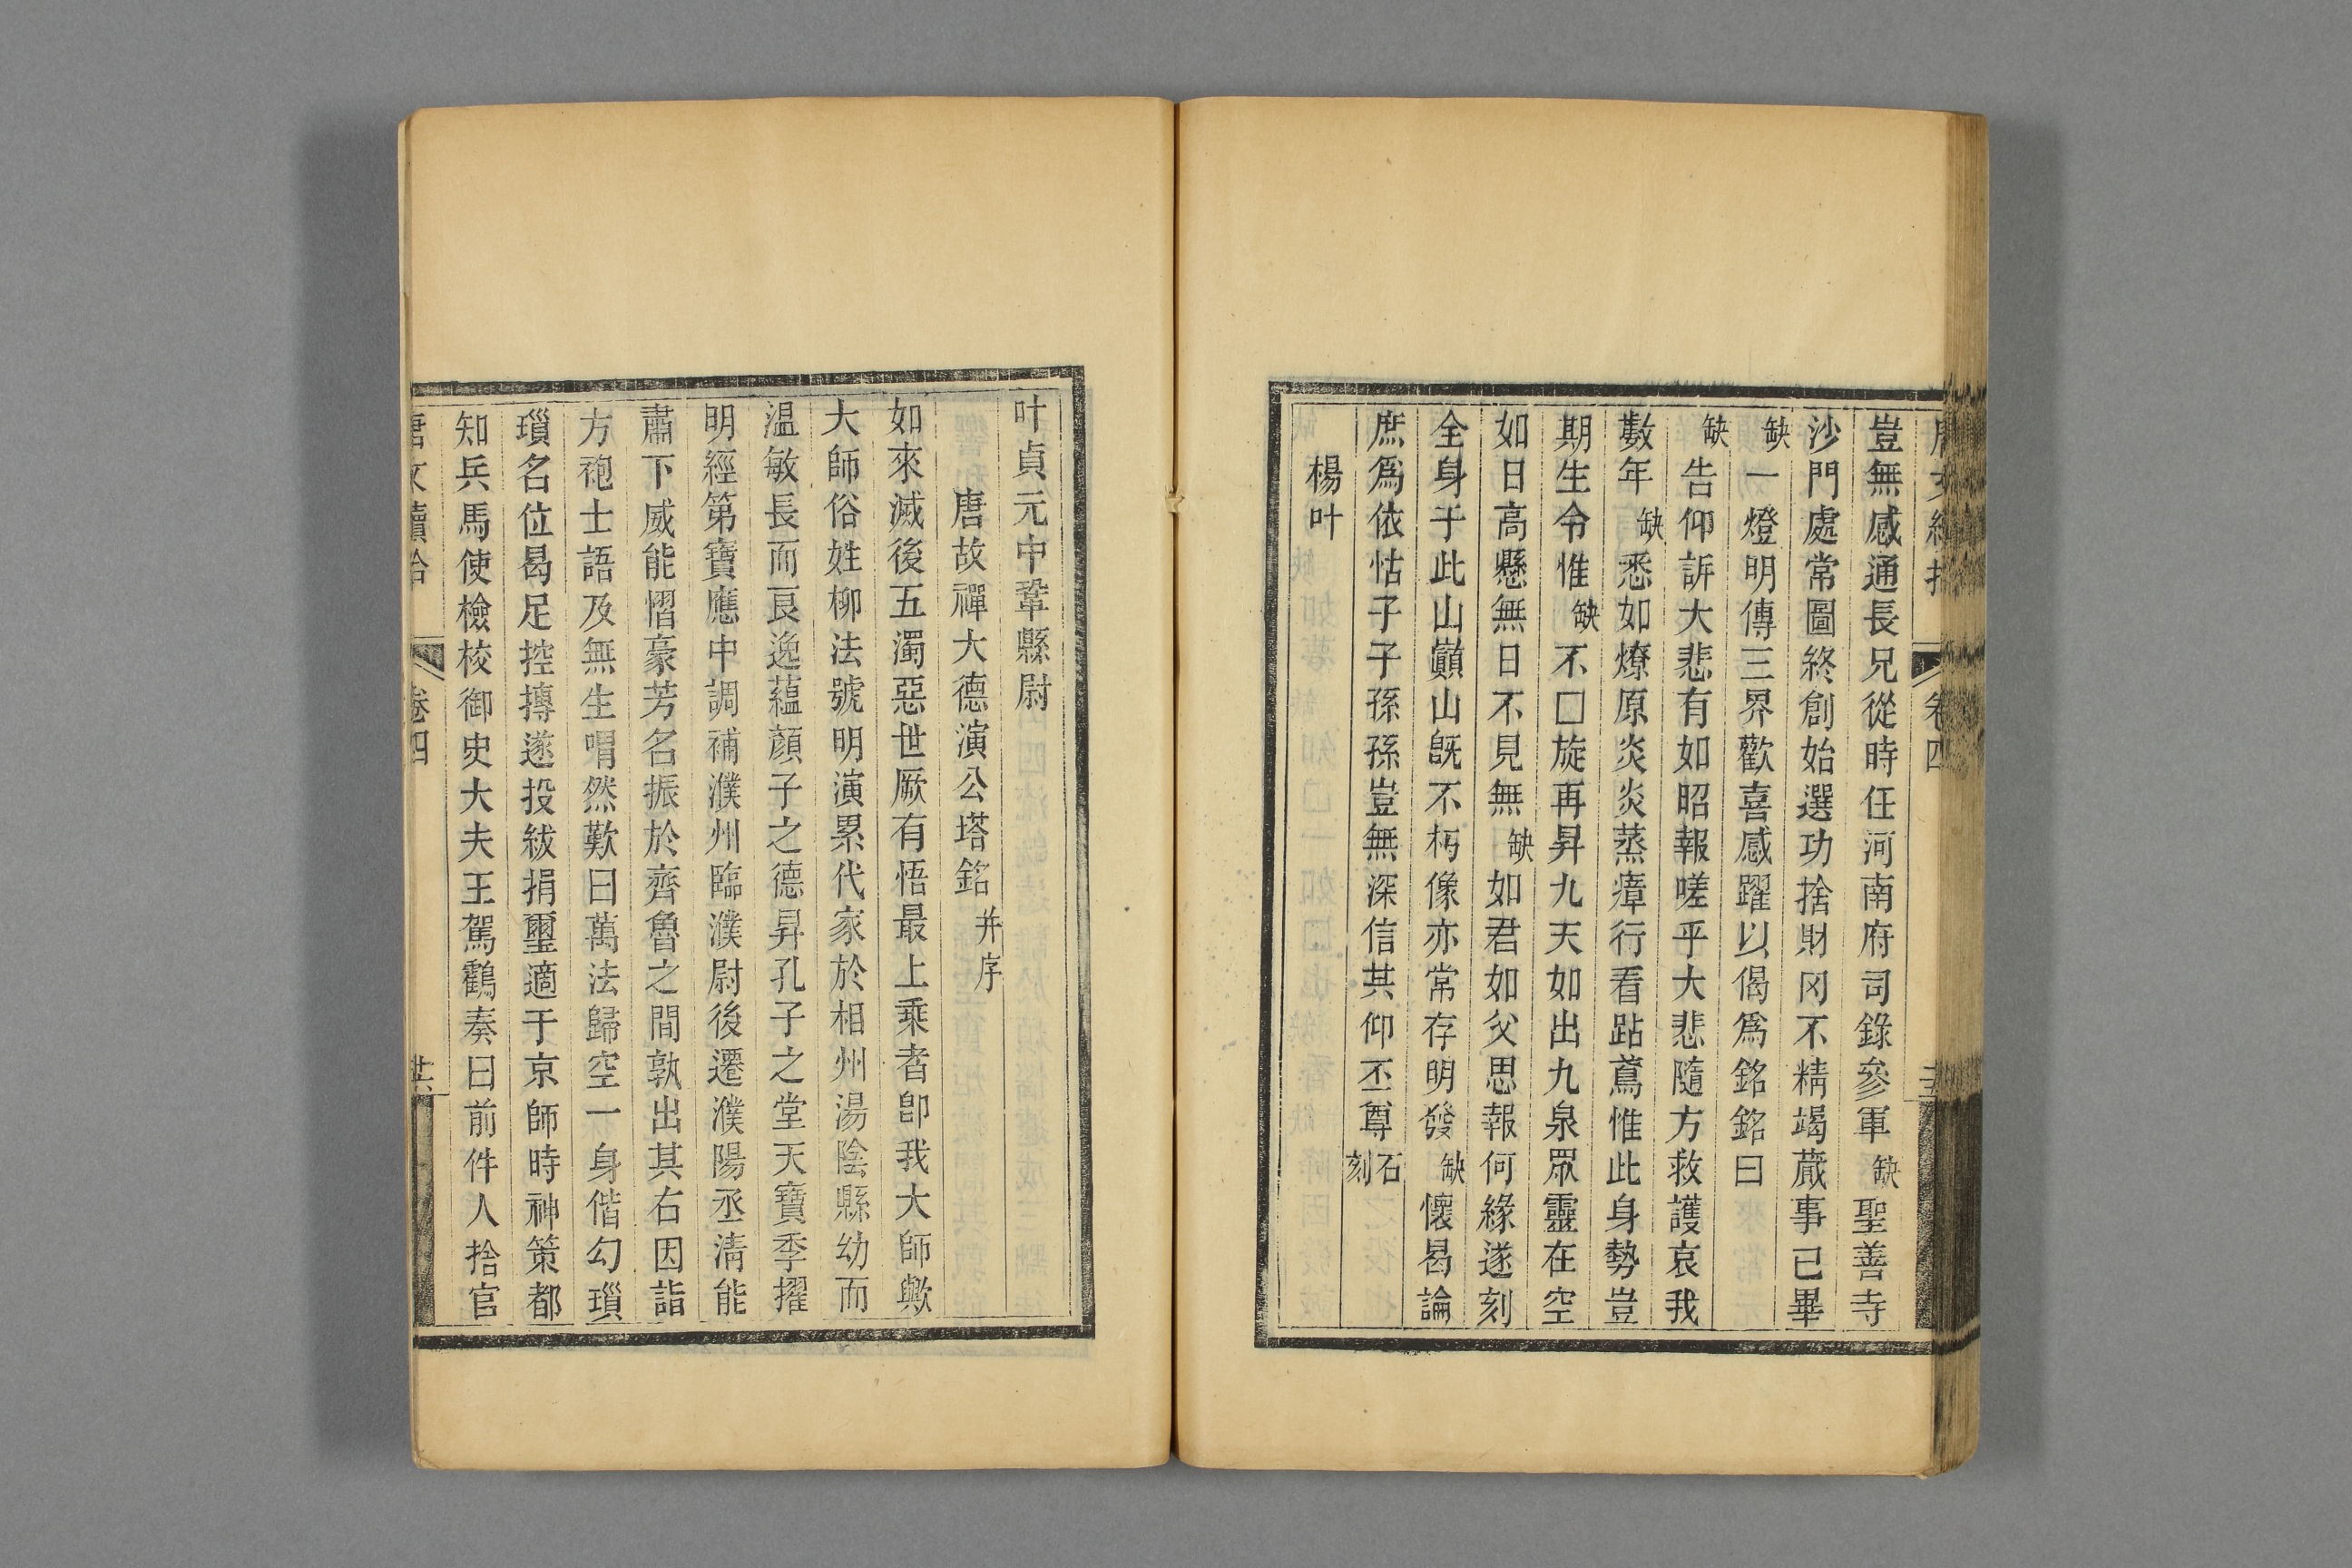 豈無感通長兄從時任河南府司錄參軍缺聖善寺
沙門處常圖終創始選功捨財冈不精竭蕆事已畢
缺一燈明傳三界歡喜感躍以偈爲銘銘曰
缺告仰訴大悲有如昭報嗟乎大悲隨方救護哀我
數年缺悉如燎原炎炎蒸瘴行看跕鳶惟此身勢豈
期生令惟缺不□旋再昇九天如出九泉眾靈在空
如日高懸無日不見無缺如君如父思報何緣遂刻
全身于此山巔山旣不朽像亦常存明發缺懷曷論
庶爲依怙子子孫孫豈無深信其仰丕尊石刻
楊叶
叶貞元中鞏縣尉
唐故禪大德演公塔銘并序
如來滅後五濁惡世厥有悟最上乘者卽我大師歟
大師俗姓柳法號明演累代家於相州湯陰縣幼而
溫敏長而艮逸蘊顔子之德昇孔子之堂天寶季擢
明經第寶應中調補濮州臨濮尉後遷濮陽丞淸能
肅下威能慴豪芳名振於齊魯之間孰出其右因詣
方袍士語及無生喟然歎曰萬法歸空一身偕幻瑣
瑣名位曷足控摶遂投紱捐璽適于京師時神策都
知兵馬使檢校御史大夫王駕鶴奏曰前件人捨官
唐文續拾 卷四 廿六